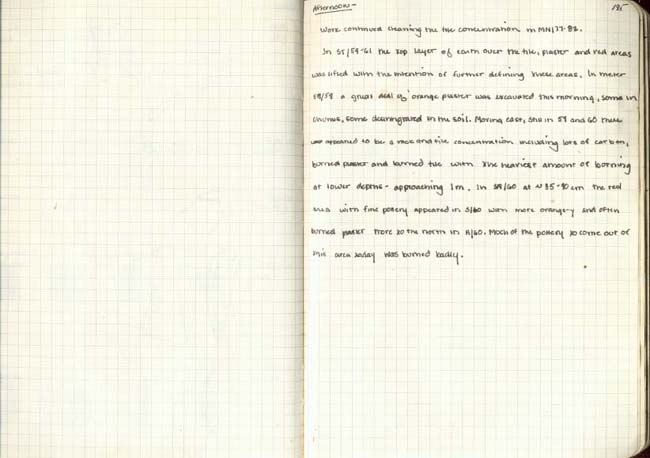 Afternoon -
185
Work continued cleaning the tile concentration in MN/77-82.
In 55/59-61 the top layer of earth over the tile, plaster and red areas
was lifted with the intention of further defining these areas. In meter
58/59 a great deal of orange plaster was excavated this morning, some in
chunks, some disintegrated in the soil. Moving east, still in 59 and 60 there
appeared to be a rock and tile concentration including lots of carbon,
burned plaster and burned tile with the heaviest amount of burning
at lower depths - approaching 1m. In 58/60 at ~ 85-90 cm the red
area with fine pottery appeared in S/60 with more orangey and often
burned plaster more to the north in R/60. Much of the pottery to come out of
this area today was burned badly.